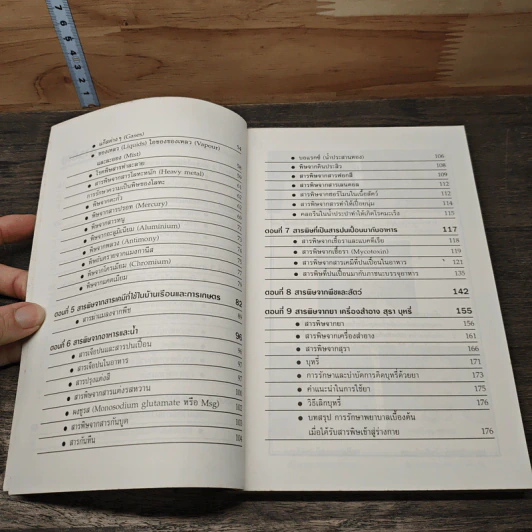 แก๊สต่างๆ (Gases) 54
ของเหลว (Liquids) ไอของของเหลว (Vapour)
และละออง (Mist)
โรคพิษสารทำละลาย
สารพิษจากสารโลหะหนัก (Heavy metal) 60
การรักษาความเป็นพิษของโลหะ
พิษจากตะกั่ว
พิษจากสารปรอท (Mercury)
พิษจากสารหนู
พิษจากอะลูมิเนียม (Aluminium)
พิษจากพลวง (Antimony)
พิษจากโครเมียม (Chromium)
พิษจากแคดเมียม
ตอนที่ 5 สารพิษจากสารเคมีที่ใช้ในบ้านเรือนและการเกษตร 82
ตอนที่ 6 สารพิษจากอาหารและน้ำ 96
สารเจือปนและสารปนเปื้อน
สารเจือปนในอาหาร
สารปรุงแต่งสี
สารพิษจากสารแต่งรสหวาน
ผงชูรส (Monosodium glutamate หรือ Msg)
สารพิษจากสารกันบูด 103
สารกันหืน 104
บอแรกซ์ (น้ำประสานทอง) 106
พิษจากดินประสิว 108
สารพิษจากสารฟอกสี 109
สารพิษจากสารแลนคอล 112
สารพิษจากฮอร์โมนในเนื้อสัตว์ 112
สารพิษจากสารทำให้เปื่อยนุ่ม 114
คลอรีนในน้ำประปาทำให้เกิดโรคมะเร็ง 115
ตอนที่ 7 สารพิษที่เป็นสารปนเปื้อนมากับอาหาร 117
สารพิษจากเชื้อราและแบคทีเรีย 118
สารพิษจากเชื้อรา (Mycotoxin) 119
สารพิษจากสารเคมีที่ปนเปื้อนในอาหาร 121
สารพิษที่ปนเปื้อนมากับภาชนะบรรจุอาหาร 135
ตอนที่ 8 สารพิษจากพืชและสัตว์ 142
ตอนที่ 9 สารพิษจากยา เครื่องสำอาง สุรา บุหรี่ 155
สารพิษจากยา 156
สารพิษจากเครื่องสำอาง 161
สารพิษจากสุรา 166
บุหรี่ 171
การรักษาและบำบัดการติดบุหรี่ด้วยยา 173
คำแนะนำในการใช้ยา 175
วิธีเลิกบุหรี่ 176
บทสรุป การรักษาพยาบาลเบื้องต้น
เมื่อได้รับสารพิษเข้าสู่ร่างกาย 176